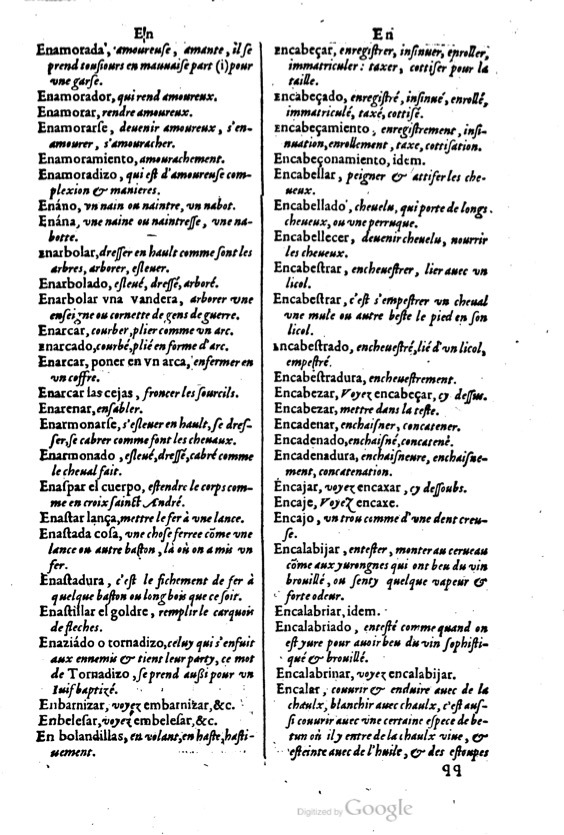 En
Enamorada, amoureuse, amante, il se
prend tousiours en mauuaise part (i) pour
vne garse.
Enamorador, qui rend amoureux.
Enamorar, rendre amoureux.
Enamorarse, deuenir amoureux, s'en-
amourer, s'amouracher.
Enamoramiento, amourachement.
Enamoradizo, qui est d'amoureuse com-
plexion & manieres.
Enáno, vn nain ou naintre, vn nabot.
Enána, vne naine ou naintresse, vne na-
botte.
Enarbolar, dresser en hault comme sont les
arbres, arborer, esleuer.
Enarbolado, esleué, dressé, arboré.
Enarbolar vna vandera, arborer vne
enseigne ou cornette de gens de guerre.
Enarcar, courber, plier comme vn arc.
Enarcado, courbé, plié en forme d'arc.
Enarcar, poner en vn arca, enfermer en
vn coffre.
Enarcar las cejas, froncer les sourcils.
Enarenar, ensabler.
Enarmonarse, s'esleuer en hault, se dres-
ser, se cabrer comme font les cheuaux.
Enarmonado, esleué, dressé, cabré comme
le cheual fait.
Enaspar el cuerpo, estendre le corps com-
me en croix sainct André.
Enastar lança, mettre le fer à vne lance.
Enastada cosa, vne chose ferree cõme vne
lance ou autre baston, là où on a mis vn
fer.
Enastadura, c'est le fichement de fer à
quelque baston ou long bois que ce soit.
Enastillar el goldre, remplir le carquois
de fleches.
Enaziádo o tornadizo, celuy qui s'enfuit
aux ennemis & tient leur party, ce mot
de Tornadizo, se prend außi pour vn
Iuif baptizé.
Enbarnizar, voyez embarnizar, &c.
Enbelesar, voyez embelesar, &c.
En bolandillas, en volant, en haste, hasti-
uement.
En
Encabeçar, enregistrer, insinuer, enroller,
immatriculer: taxer, cottiser pour la
taille.
Encabeçado, enregistré, insinué, enrollé,
immatriculé, taxé, cottisé.
Encabeçamiento, enregistrement, insi-
nuation, enrollement, taxe, cottisation.
Encabeçonamiento, idem.
Encabellar, peigner & attifer les che-
ueux.
Encabellado, cheuelu, qui porte de longs
cheueux, ou vne perruque.
Encabellecer, deuenir cheuelu, nourrir
les cheueux.
Encabestrar, encheuestrer, lier auec vn
licol.
Encabestrar, c'est s'empestrer vn cheual
vne mule ou autre beste le pied en son
licol.
Encabestrado, encheuestré, lié d'vn licol,
empestré.
Encabestradura, encheuestrement.
Encabezar, Voyez encabeçar, cy dessus.
Encabezar, mettre dans la teste.
Encadenar, enchaisner, concatener.
Encadenado, enchaisné, concatené.
Encadenadura, enchaisneure, enchaisne-
ment, concatenation.
Encajar, voyez encaxar, cy dessoubs.
Encaje, Voyez encaxe.
Encajo, vn trou comme d'vne dent creu-
se.
Encalabijar, entester, monter au cerueau
cõme aux yurongnes qui ont beu du vin
brouillé, ou senty quelque vapeur &
forte odeur.
Encalabriar, idem.
Encalabriado, entesté comme quand on
est yure pour auoir beu du vin sophisti-
qué & brouillé.
Encalabrinar, voyez encalabijar.
Encalar, couurir & enduire auec de la
chaulx, blanchir auec chaulx, c'est aus-
si couurir auec vne certaine espece de be-
tun où il y entre de la chaulx viue, &
esteinte auec de l'huile, & des estoupes
qq
Digitized by Google